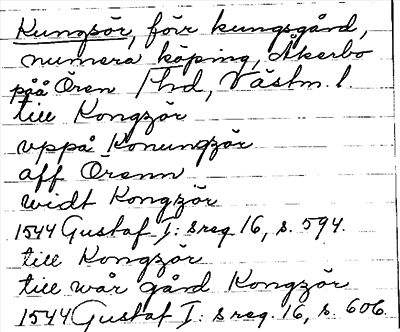 Kungsör, förr kungsgård,
numera köping, Åkerbo
på Ören / hd, Västm. l.
till Kongzör
vppå Konungzör
aff Örenn
widt Kongzör
1544 Gustaf I: s reg. 16, s. 594.
till Kongzör
till wår gård Kongzör
1544 Gustaf I: s reg. 16, s. 606.